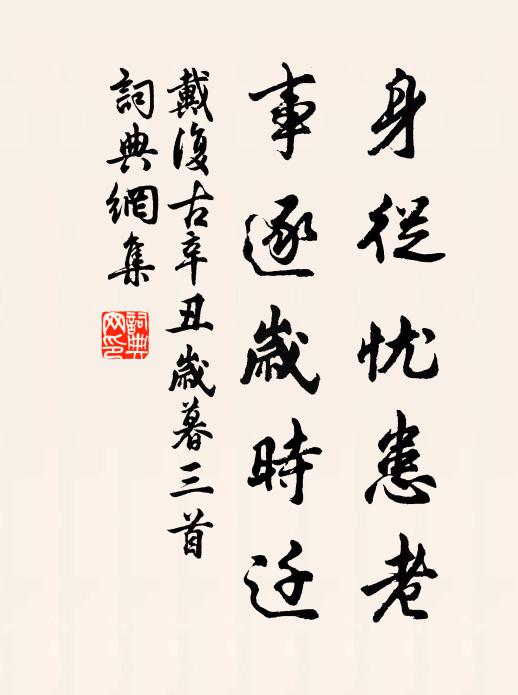 身從忧患老
事逐歲時迁
戴復古辛丑歲暮三首
詞典網集
詞典
网印